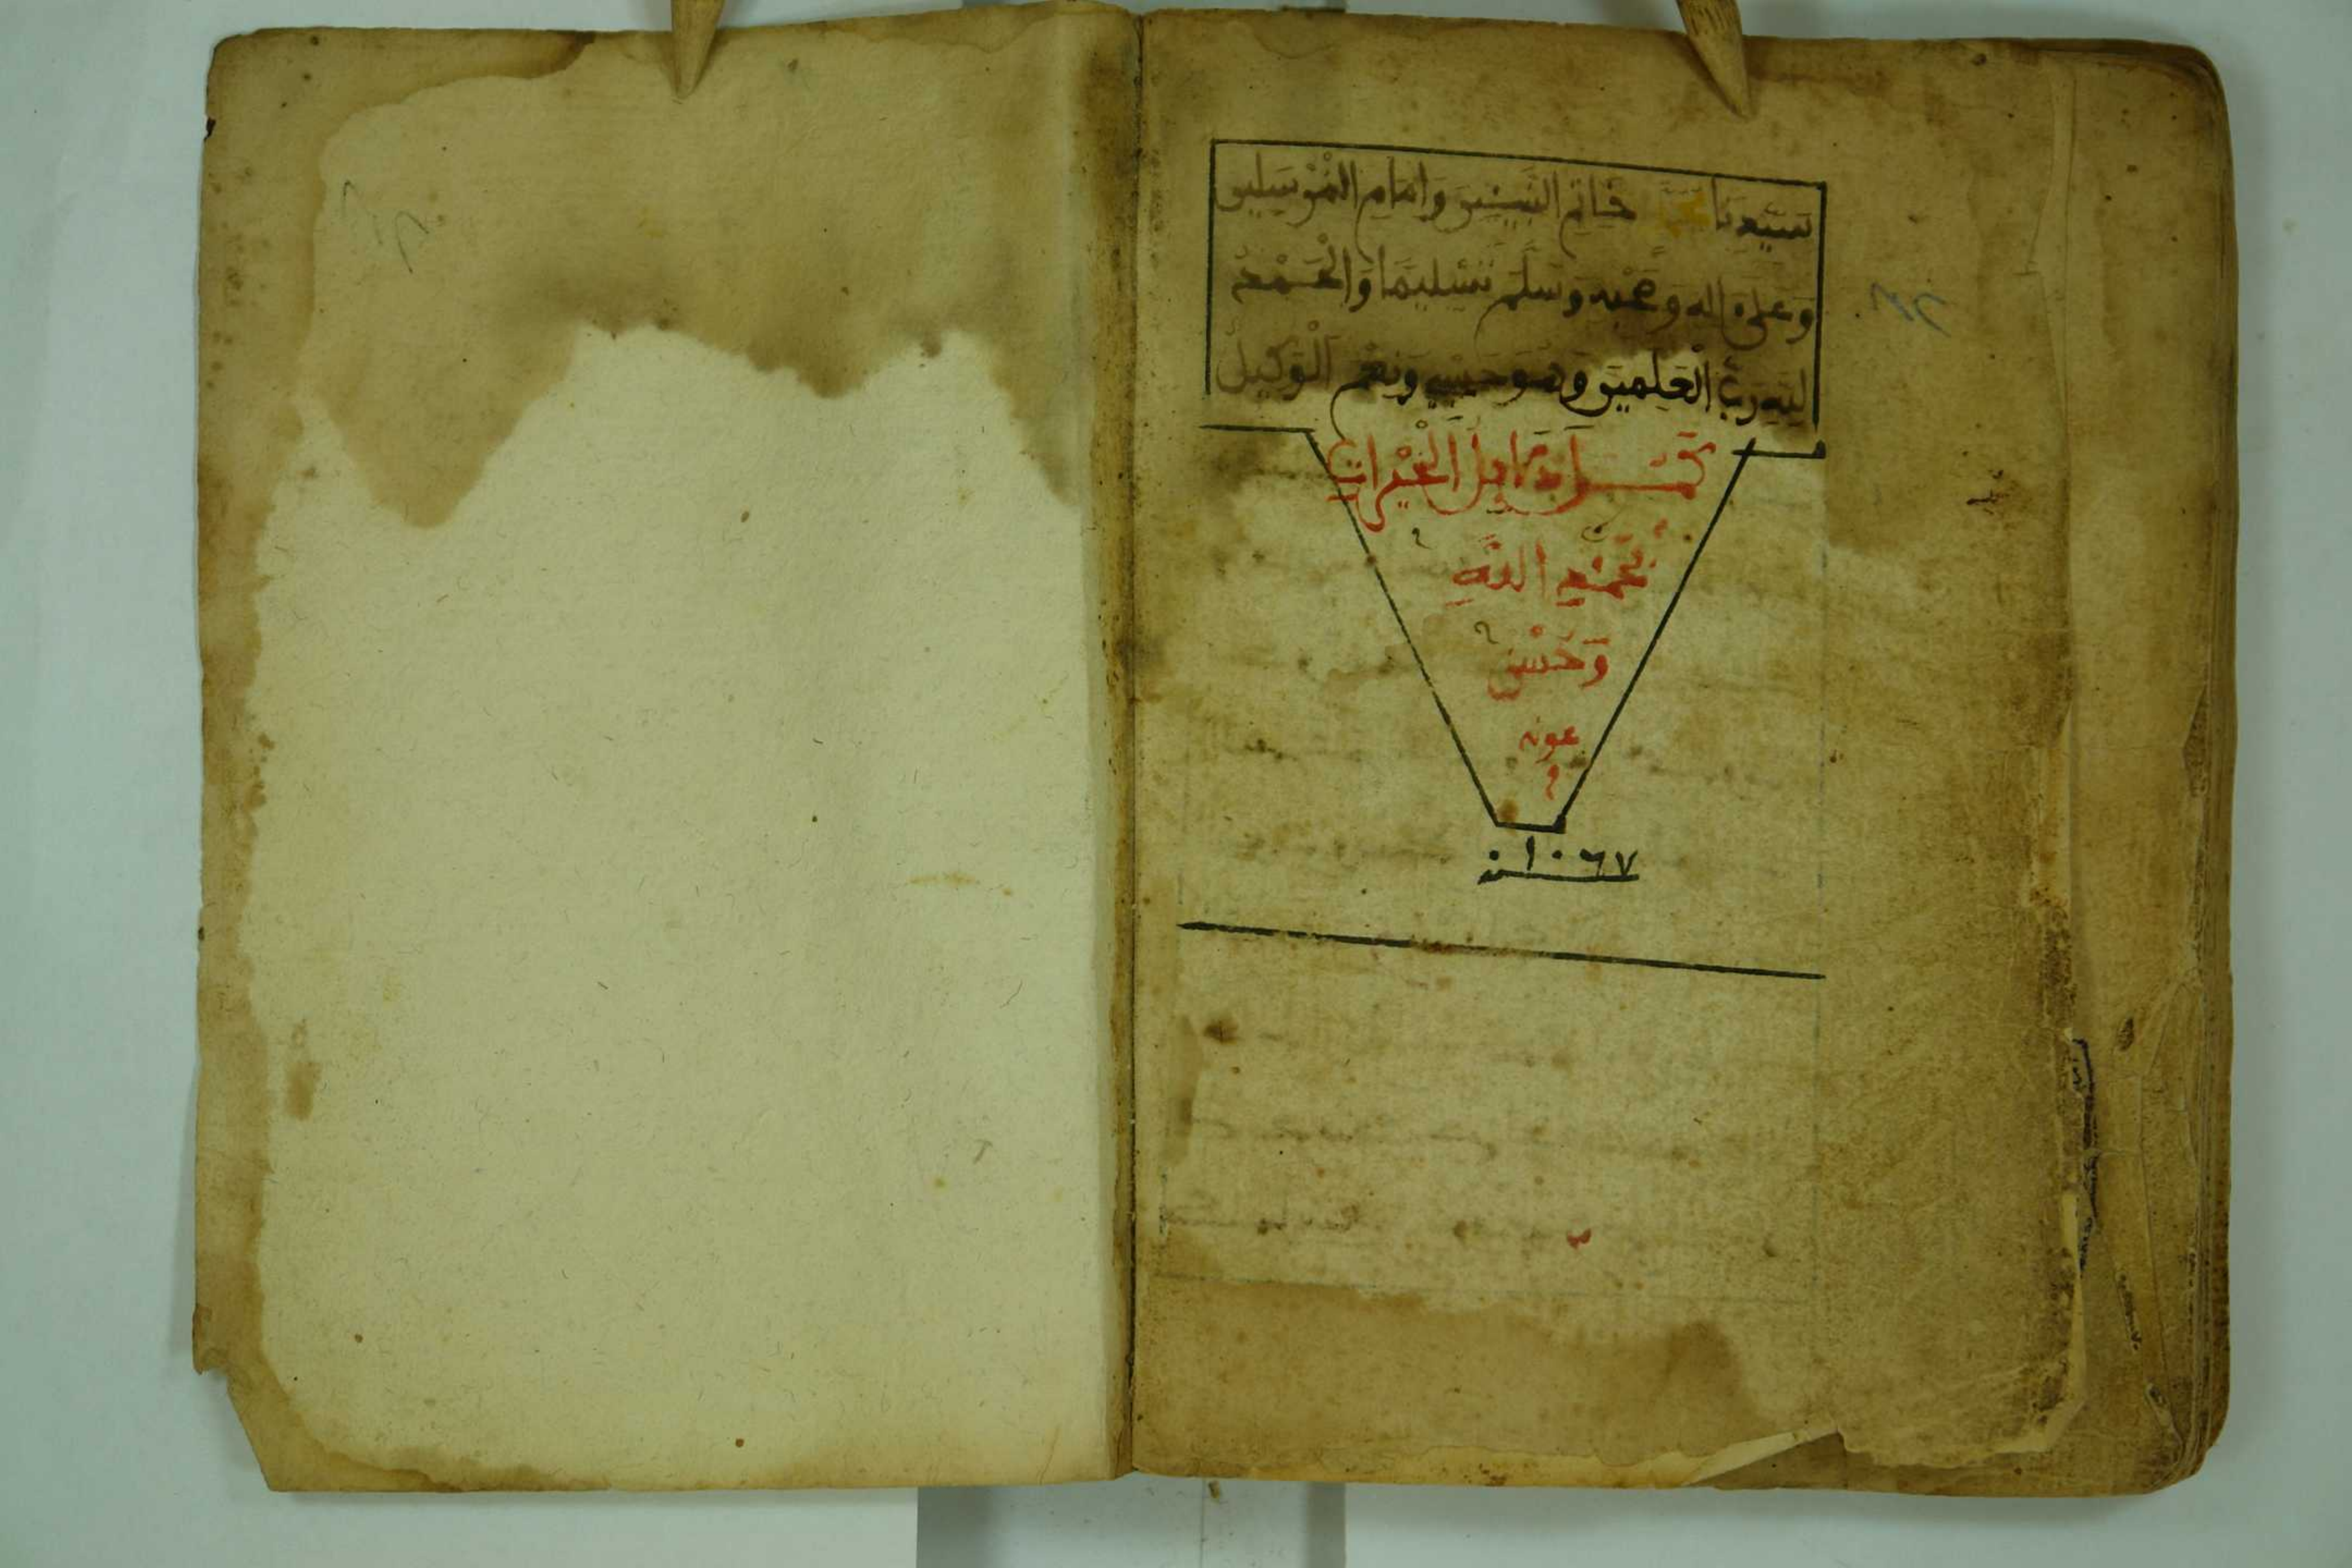 سَيِّدِنَا مُحَمَّدٍ خَاتِمِ النَّبِيِّينَ وَإِمَامِ الْمُرْسَلِينَ
وَعَلَى ءالِهِ وَصَحْبِهِ وَسَلَّمَ تَسْلِيمًا وَالْحَمْدُ
لِلهِ رَبِّ الْعَلَمِينَ وَهُوَ حَسْبِي وَنِعْمَ الْوَكِيلُ
كَمُلَ دَلَايِلُ الْخَيْرَاتِ
بِحَمْدِ اللَّهِ
وَحُسْنِ
عونه
سنة ١٠٦٧